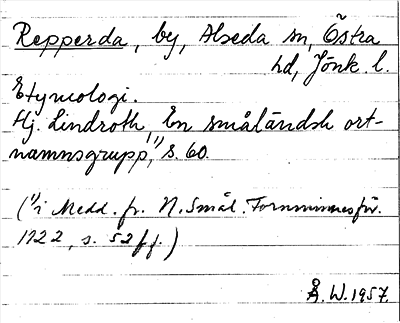 Repperda, by, Alseda sn, Östra
hd, Jönk. l.
Etymologi.
Hj. Lindroth, En småländsk ort-
namnsgrupp,¹⁾ s. 60.
(¹⁾i Medd. fr. N. Smål. Fornminnesför.
1922, s. 52 ff.)
Å. W. 1957.